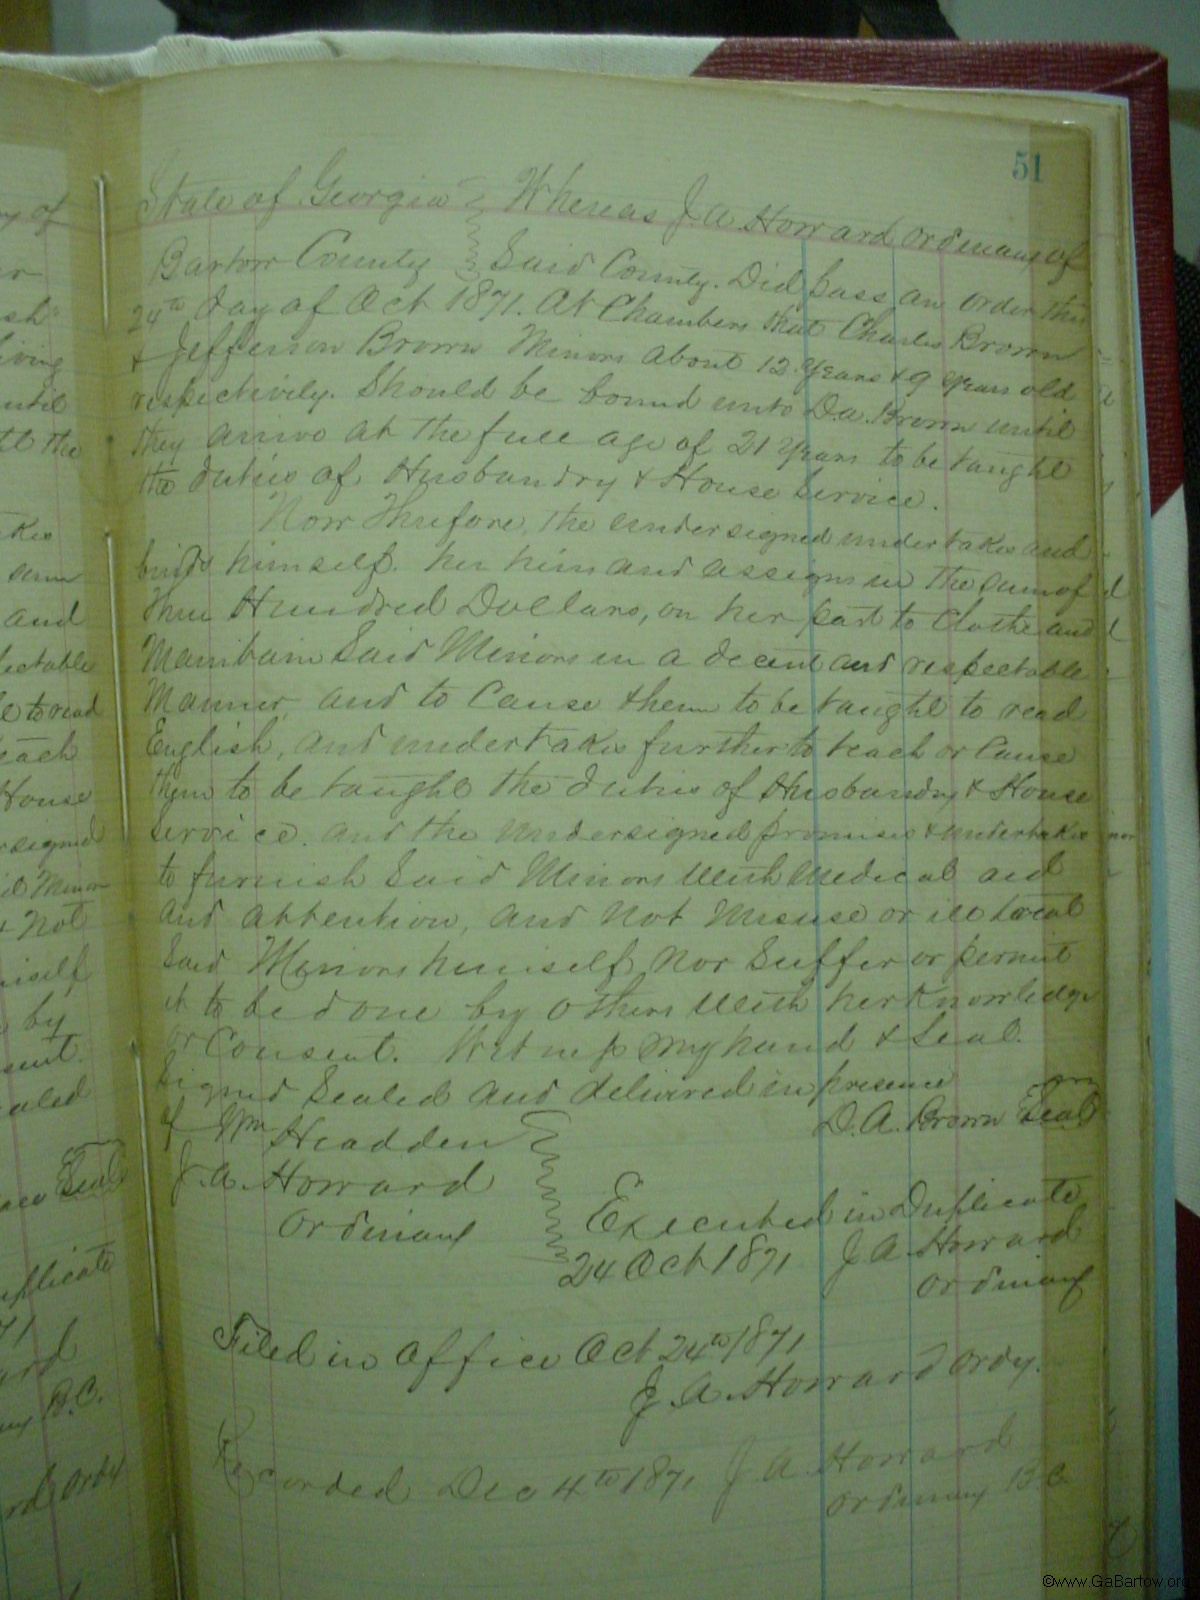 51
State of Georgia Whereas J. A. Howard Ordinary of
Bartow County Said County. Did pass an order this
24th day of Oct 1871. At Chambers that Charles Brown
& Jefferson Brown Minors about 12 Years & 9 Years old
respectively. Should be bound unto D. A. Brown until
they arrive at the full age of 21 Years to be taught
the duties of Husbandry & House Service.
Now Therefore, the undersigned undertakes and
binds himself. her him and assigns in the sum of
Three Hundred Dollars, on her part to Clothe and
Maintain Said Minors in a decent and respectable
Manner, and to Cause them to be taught to read
English, and undertakes further to teach or Cause
them to be taught the duties of Husbandry & House
Service. and the undersigned promises & undertakes
to furnish Said Minors With Medical aid
and attention, and not Misuse or ill treat
Said Minors himself, nor Suffer or permit
it to be done by others With her Knowledge
or Consent. Witness My hand & Seal.
Signed Sealed and delivered in presence
of Wm Headden D. A. Brown Seal
J. A. Howard
Ordinary
Executed in Duplicate
24 Oct 1871 J A Howard
Ordinary
Filed in office Oct 24th 1871
J. A. Howard Ordy.
Recorded Dec 4th 1871 J A Howard
Ordinary B.C.
©www.GaBartow.org